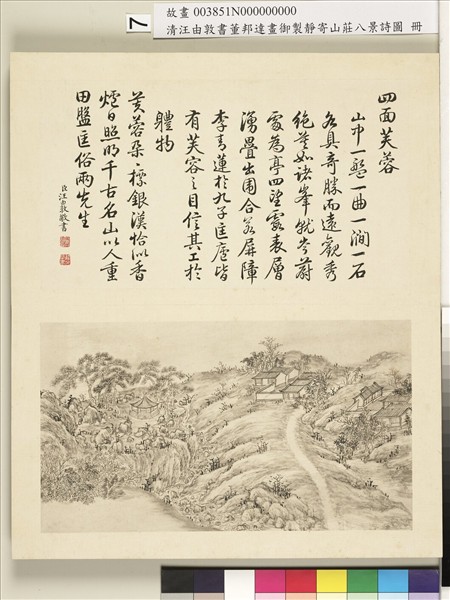 7
故畫 003851N000000000
清汪由敦書董邦達畫御製靜寄山莊八景詩圖 冊
四面芙蓉
山中一壑一曲一澗一石
各具奇勝而遠觀秀
絕莫如諸峯就岑蔚
處為亭四望霞表層
湧疊出圍合若屏障
李青蓮於九子匡廬皆
有芙蓉之目信其工於
體物
芙蓉朵朵標銀漢恰似香
爐日照明千古名山以人重
田盤匡俗兩先生
臣汪由敦敬書